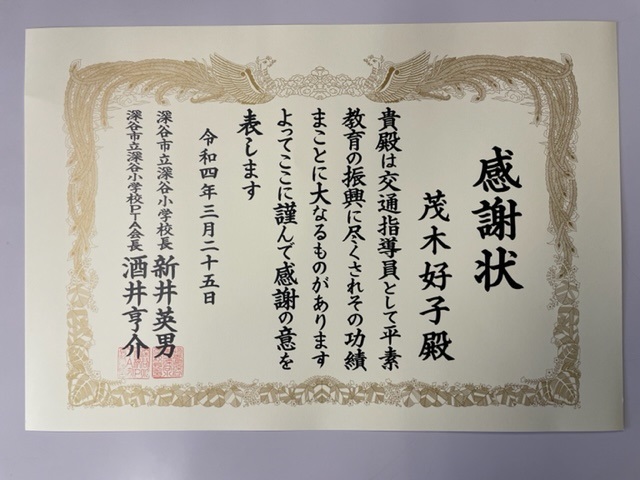 感謝状
茂木好子殿
貴殿は交通指導員として平素
教育の振興に尽くされその功績
まことに大なるものがあります
よってここに謹んで感謝の意を
表します
令和四年三月二十五日
深谷市立深谷小学校長 新井英男
深谷市立深谷小学校PTA会長 酒井亨介